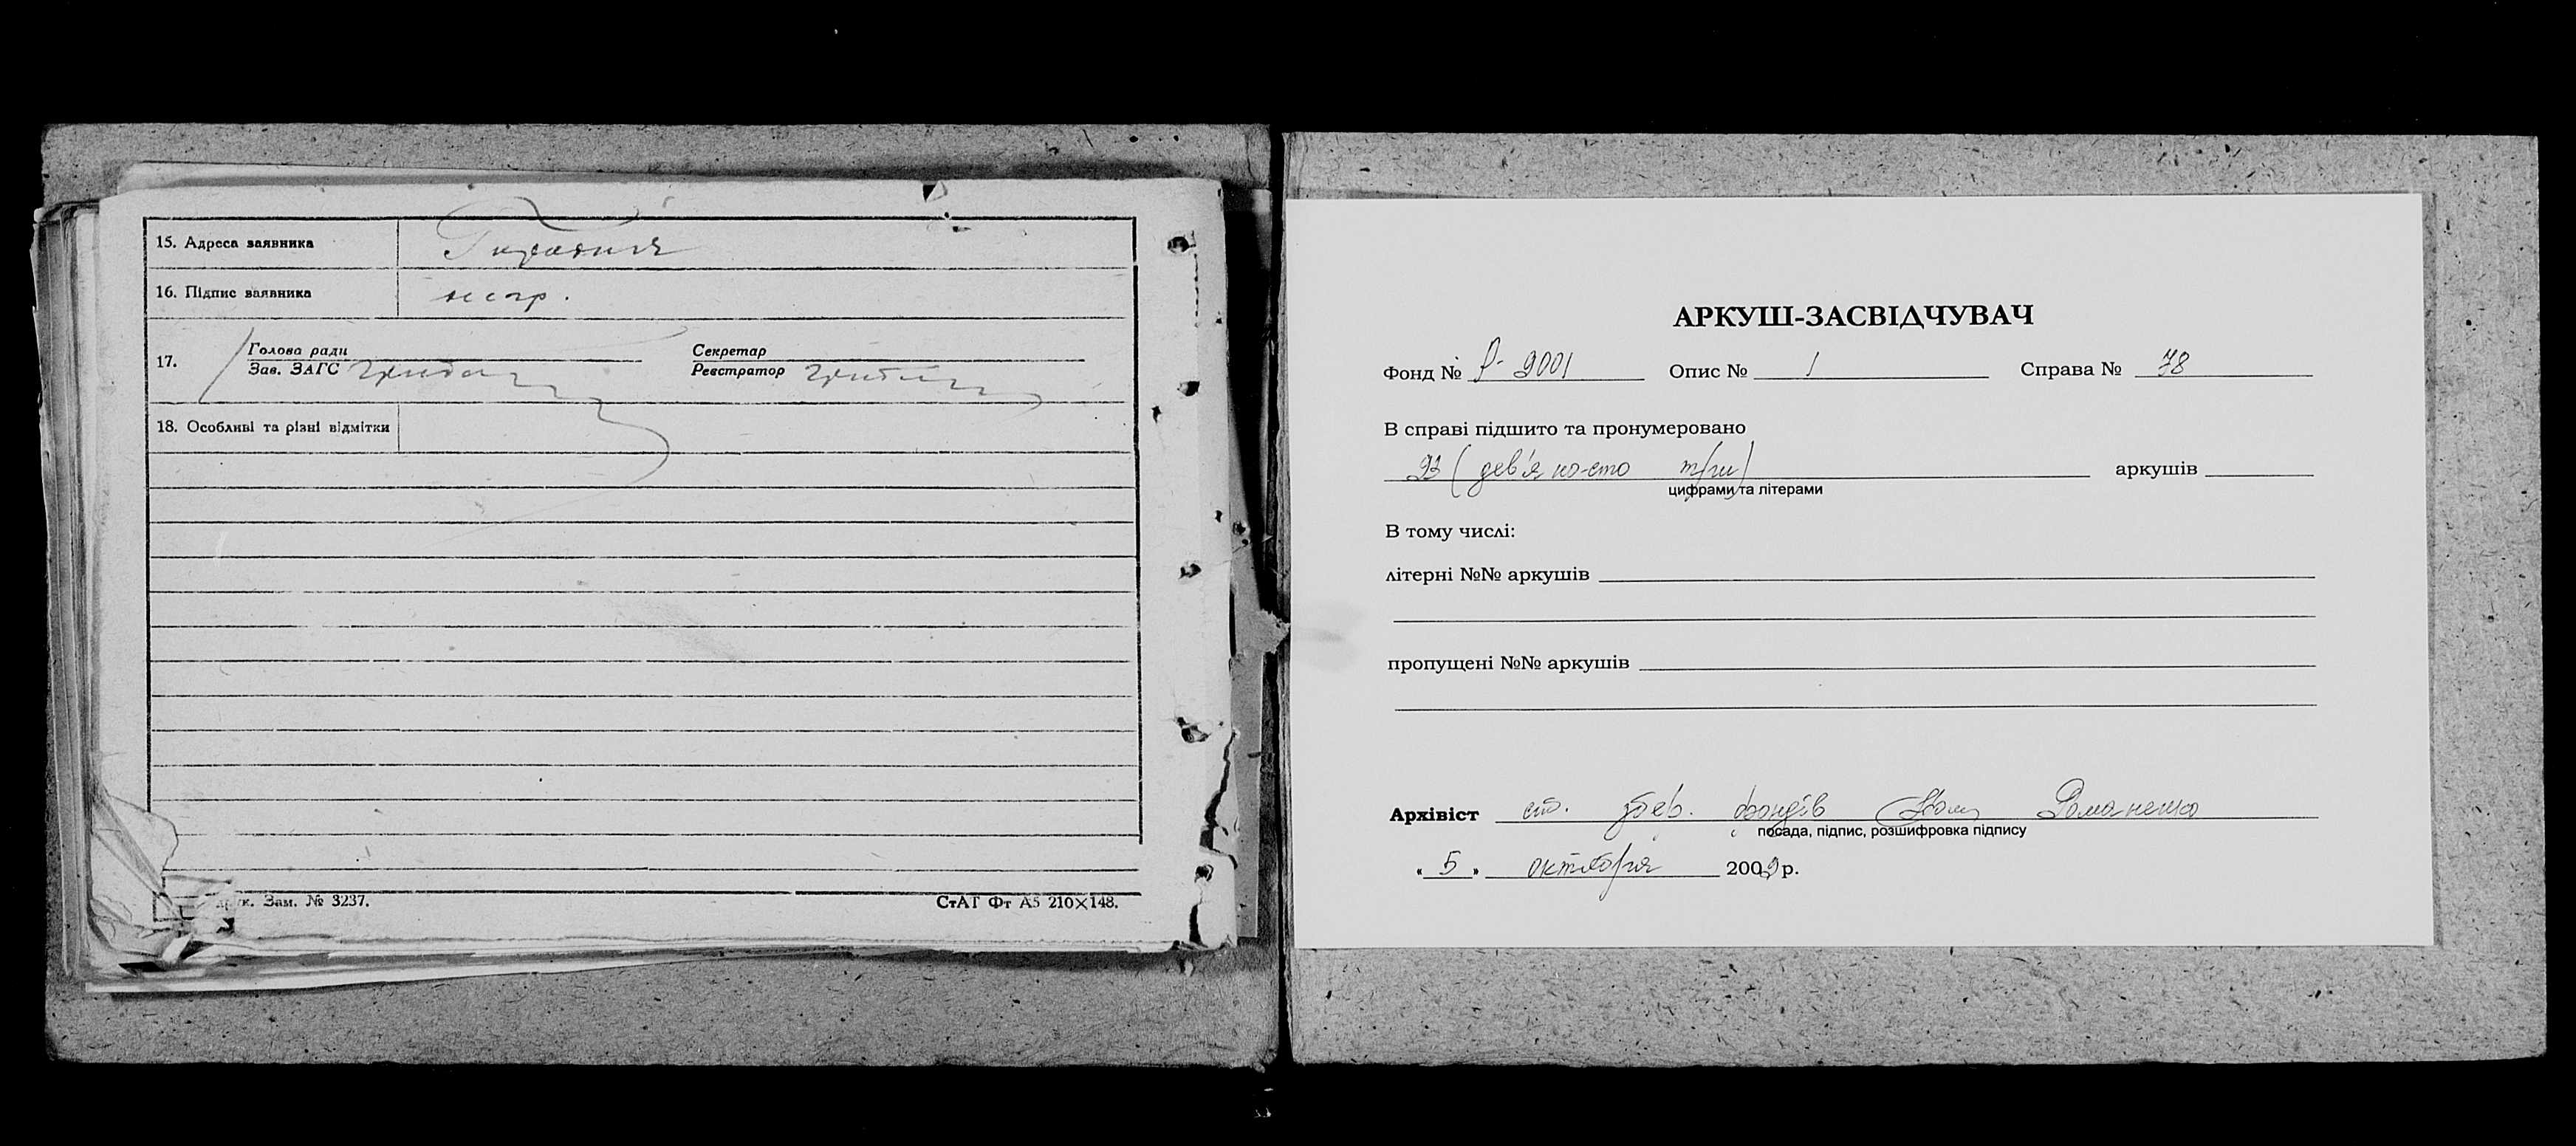 15. Адреса заявника
16. Підпис заявника
17. Голова ради Секретар
Зав. ЗАГС Реєстратор
18. Особливі та різні відмітки
друк. Зам. № 3237. СтАТ Фт А5 210×148.
АРКУШ-ЗАСВІДЧУВАЧ
Фонд № Р-9001 Опис № 1 Справа № 78
В справі підшито та пронумеровано
93 (дев'яносто три) аркушів
цифрами та літерами
В тому числі:
літерні №№ аркушів
пропущені №№ аркушів
Архівіст ст. збер. фондів Романенко
посада, підпис, розшифровка підпису
« 5 » октября 2009 р.